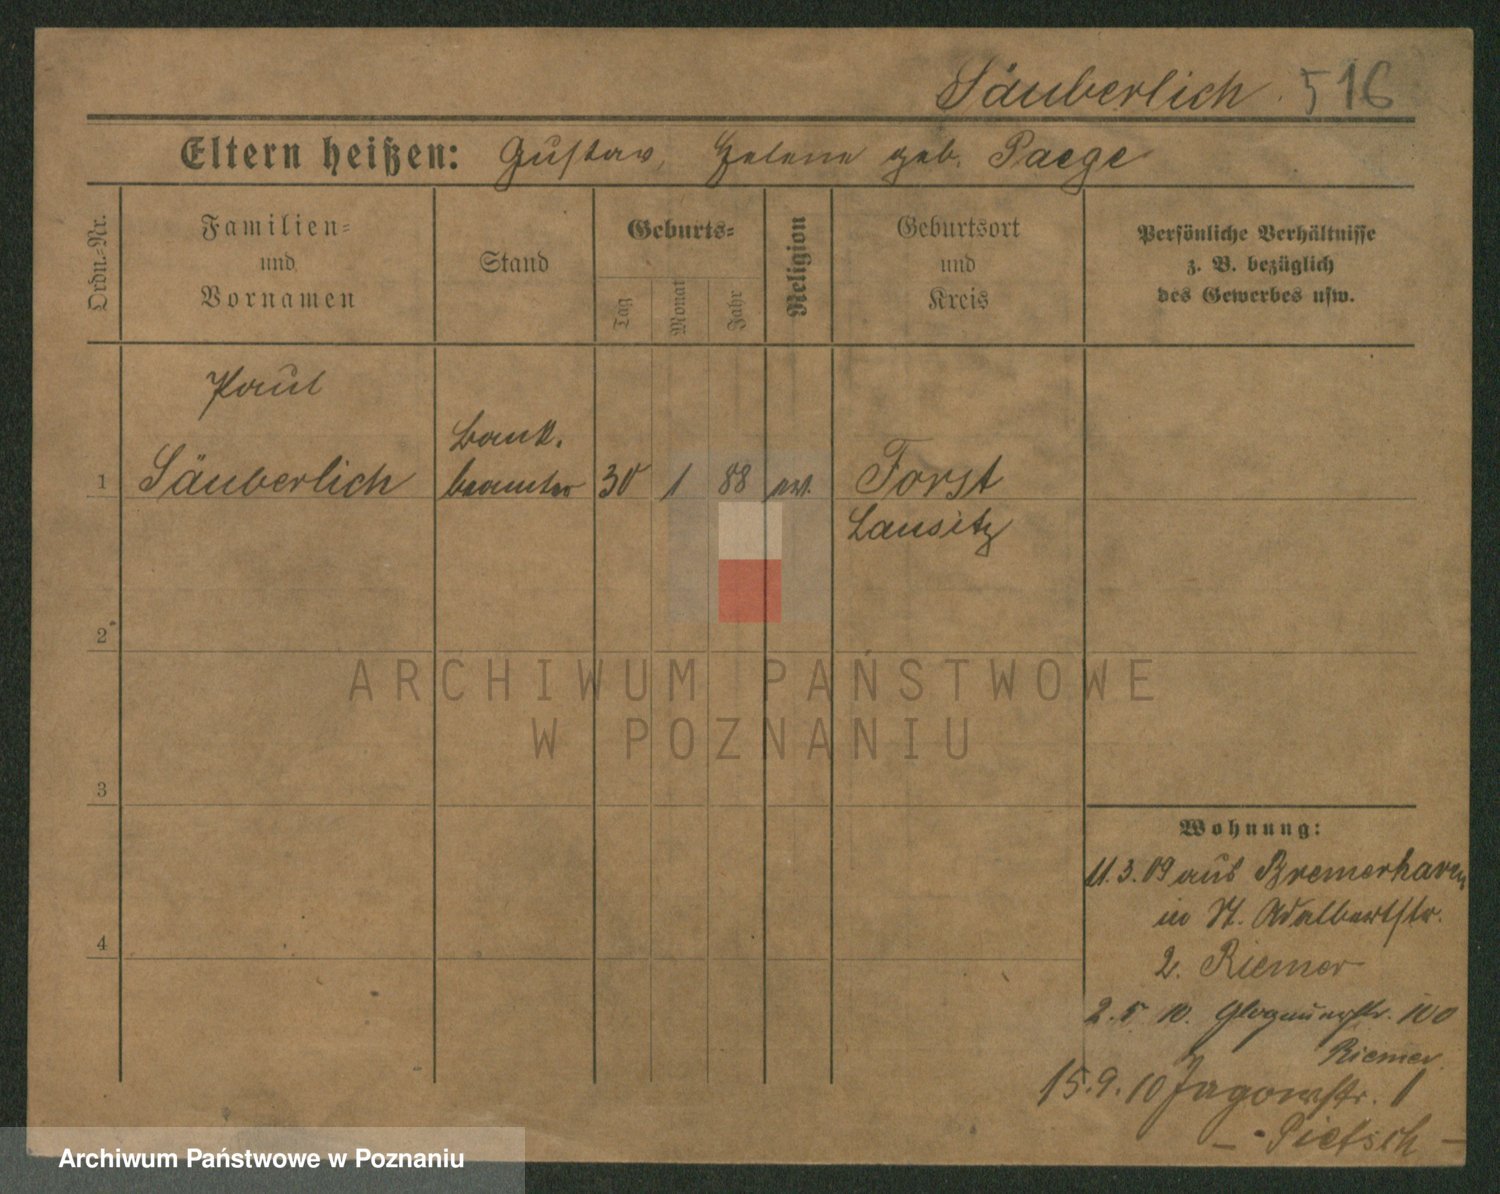 Säuberlich. 516
Eltern heißen: Gustav, Helene geb. Paege
Ordn.-Nr.
Familien-
und
Vornamen
Stand
Geburts-
Tag
Monat
Jahr
Religion
Geburtsort
und
Kreis
Persönliche Verhältnisse
z. B. bezüglich
des Gewerbes usw.
Paul
1 Säuberlich
Bank.
beamter 30 1 88 ev. Forst
Lausitz
2
3
4
Wohnung:
11.3.09 aus Bremerhaven
in St. Adalbertstr.
2. Riemer
2.5 10. Glogauerstr. 100
Riemer
15.9.10 Jagowstr. 1
- Pietsch -
ARCHIWUM PAŃSTWOWE
W POZNANIU
Archiwum Państwowe w Poznaniu